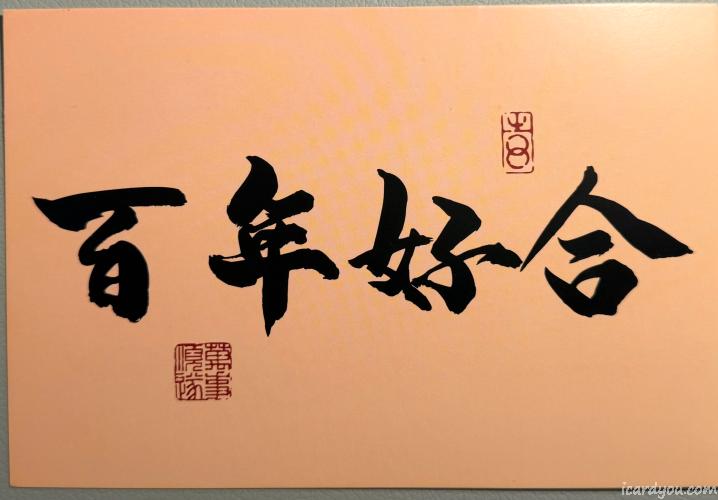 百年好合
萬事順遂
icardyou.com